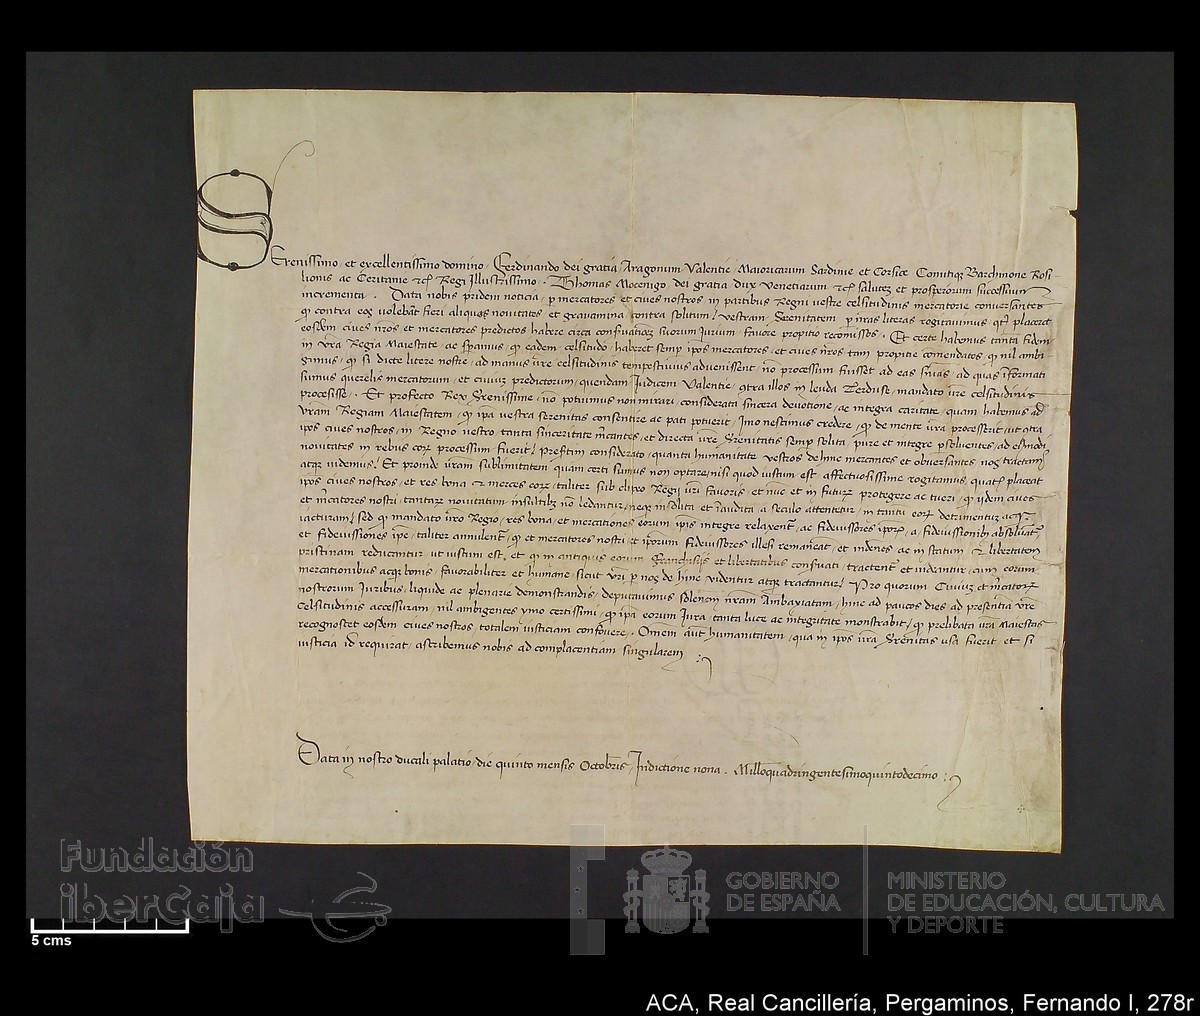 Serenissimo et excellentissimo domino, Ferdinando dei gratia Aragonum Valentie, Maioricarum Sardinie et Corsice Comitiq Barchinone Rosi-
lionis ac Ceritanie &c̄ Regi Illustrissimo. Thomas Mocenigo dei gratia dux Venetiarum &c̄ salutez et prosperorum successuum
incrementa. Data nobis pridem noticia, p mercatores et cives nostros in partibus Regni vestre celsitudinis mercatorie conversantes
q contra eos volebāt fieri aliquos novitates et gravamina contra solitum, vestram Serenitatem p nras literas rogitavimus qtz placeret
eosdem cives nros et mercatores predictos habere circa confvationez suorum Iurium, favore propitio recomissos. Et certe habemus tanta fidem
in vra Regia Maiestate, ac speramus, q eadem celsitudo, haberet semp ipos mercatores, et cives nros tam propitie comendatos, q nil ambi-
gimus, q si dicte litere nostre, ad manus vre celsitudinis tempestivius advenissent, no processum fuisset ad eas snias, ad quas iformati
sumus querelis mercatorum, et civiuz predictorum, quendam Iudicem Valentie, contra illos in leuda Terduse, mandato vre celsitudinis
processisse. Et profecto Rex Serenissime, no potuimus non mirari, considerata sincera devotione, ac integra caritate, quam habemus ad
vram Regiam Maiestatem, q ipa vestra serenitas consentire ac pati potuerit, Imo nescimus credere, q de mente vra processerit, ut contra
ipos cives nostros, in Regno vestro, tanta sinceritate mcantes, et directa vre Serenitatis semp solita, pure et integre psolventes, ad eiusmodi
novitates in rebus eorz processum fuerit, Presertim considerato, quanta humanitate vestros de hinc mercantes et obversantes nos tractemus
atqz videmus, Et proinde vram sublimitatem quam certi sumus non optare, nisi quod iustum est affectuosissime rogitamus, quatz placeat
ipos cives nostros, et res bona & merces eorz, taliter sub clipeo Regii vri favoris, et nunc et in futurz protegere ac tueri, q ijdem cives
et mcatores nostri, tantarz novitatum insultibz no ledantur, neqz insolita et inaudita a seculo attentetur, in tantu eorz detrimentuz ac
iacturam, Sed q mandato vro Regio, res bona, et mercationes eorum ipis integre relaxent, ac fideiussores iporz, a fideiussionibz absolvat
et fideiussiones ipe, taliter annulent, q et mercatores nostri, et ipsorum fideiussores illesi remaneāt, et indenes ac in statum & libertatem
pristinam reducantur, ut iustum est, et q in antiquis eorum Franchisijs et libertatibus confvati, tractent et videantur, cum eorum
mercationibus atqz bonis, favorabiliter et humane sicut vri p nos de hinc videntur atqz tractantur, Pro quorum Civiuz et mcatorz
nostrorum Iuribus, liquide ac plenarie demonstrandis, deputavimus solenem nram Ambaxiatam, hinc ad paucos dies ad presentia vre
celsitudinis accessuram, nil ambigentes ymo certissimi, q ipa eorum Iura tanta luce ac integritate monstrabit, q prelibata vra Maiestas
recognoscet eosdem cives nostros, totalem iusticiam confovere. Omnem aut humanitatem, qua in ipos vra Serenitas usa fuerit, et si
iusticia id requirat, ascribemus nobis ad complacentiam singularem
Data in nostro ducali palatio, die quinto mensis Octobris, Indictione nona. Milloquadringentesimoquintodecimo
Fundación
iberCaja
GOBIERNO
DE ESPAÑA
MINISTERIO
DE EDUCACIÓN, CULTURA
Y DEPORTE
5 cms
ACA, Real Cancillería, Pergaminos, Fernando I, 278r